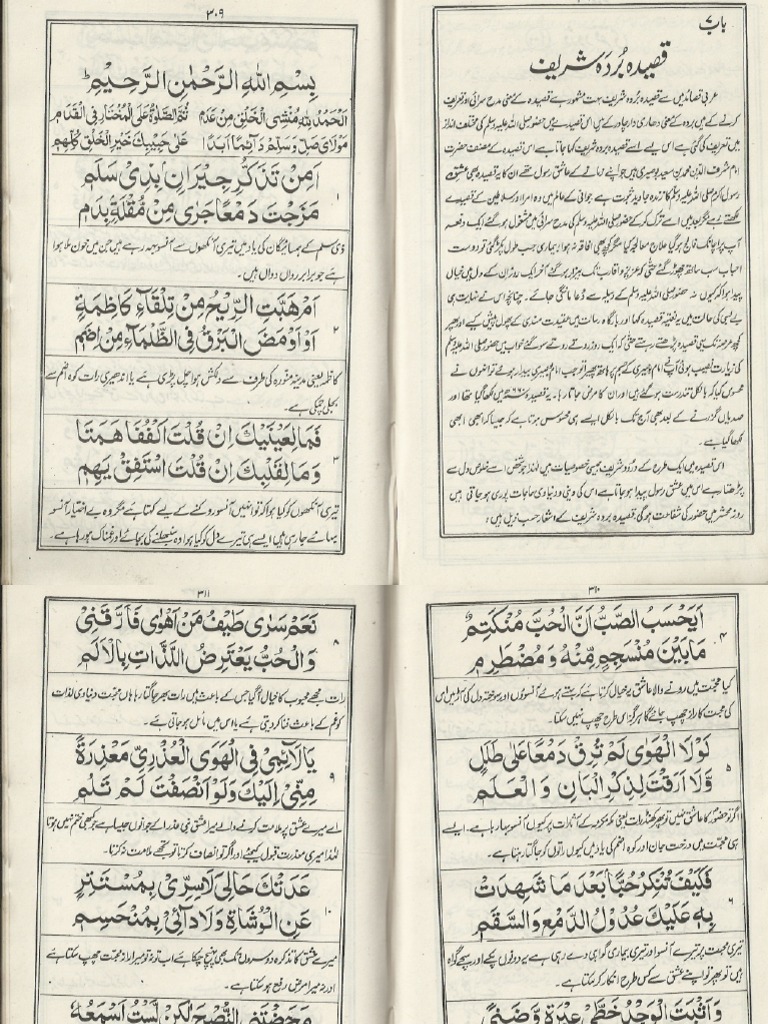 باب ۷
قصیدہ بُردہ شریف
عربی قصائد میں سے قصیدہ بردہ شریف بہت مشہور ہے قصیدہ کے معنی مدح سرائی اور تعریف
کرنے کے ہیں بردہ کے معنی دھاری دار چادر کے ہیں اس قصیدے میں حضور صلی اللہ علیہ وسلم کی مختلف انداز
میں تعریف کی گئی ہے اس لیے اسے قصیدہ بردہ شریف کہا جاتا ہے اس قصیدہ کے مصنف حضرت
امام شرف الدین محمد بن سعید بوصیری ہیں جو اپنے زمانے کے عاشق رسول تھے ان کا یہ قصیدہ بھی عشق
رسول اکرم صلی اللہ علیہ وسلم کا زندہ جاوید ثبوت ہے جوانی کے عالم میں وہ امراء اور سلاطین کے قصیدے
لکھتے رہے مگر بعد میں اسے ترک کر کے حضور صلی اللہ علیہ وسلم کی مدح سرائی میں مشغول ہو گئے ایک دفعہ
آپ پر اچانک فالج ہو گیا علاج معالجہ کیا مگر کچھ بھی افاقہ نہ ہوا بیماری جب طول پکڑ گئی تو دوست
احباب سب ساتھ چھوڑ گئے حتٰی کہ عزیز و اقارب تک بیزار ہو گئے آخر ایک روز ان کے دل میں خیال
پیدا ہوا کہ کیوں نہ حضور صلی اللہ علیہ وسلم کے وسیلہ سے دعا مانگی جائے۔ چنانچہ اس نے نہایت ہی
بے بسی کی حالت میں یہ نعتیہ قصیدہ کہا اور بارگاہ رسالت میں عقیدت مندی کے پھول پیش کیے اور پھر
کچھ عرصہ تک یہی قصیدہ پڑھتے رہتے حتٰی کہ ایک روز روتے روتے سو گئے خواب میں حضور صلی اللہ علیہ وسلم
کی زیارت نصیب ہوئی آپ نے امام بوصیری کے جسم پر ہاتھ پھیرا تو جب امام بوصیری بیدار ہوئے تو انہوں نے
محسوس کیا کہ بالکل تندرست ہو گئے ہیں اور ان کا مرض جاتا رہا۔ یہ قصیدہ میں لکھا گیا تھا اور
صدیاں گزرنے کے بعد بھی آج تک بالکل ایسے ہی محسوس ہوتا ہے کہ جیسا کہ ابھی ابھی
لکھا گیا ہے۔
اس قصیدہ میں ایک طرح کے درود شریف جیسی خصوصیات ہیں لہٰذا جو شخص اسے خلوص دل سے
پڑھتا رہے اس میں عشق رسول پیدا ہو جاتا ہے اس کی دینی و دنیاوی حاجات پوری ہو جاتی ہیں
روز محشر میں حضور کی شفاعت ہو گی۔ قصیدہ بردہ شریف کے اشعار حسب ذیل ہیں:
۳۰۹
بِسْمِ اللهِ الرَّحْمٰنِ الرَّحِيْمِ
اَلْحَمْدُ لِلهِ مُنْشِی الْخَلْقِ مِنْ عَدَمٍ ثُمَّ الصَّلٰوةُ عَلَی الْمُخْتَارِ فِی الْقِدَمِ
مَوْلَایَ صَلِّ وَسَلِّمْ دَآئِمًا اَبَدًا عَلٰی حَبِيْبِكَ خَيْرِ الْخَلْقِ كُلِّهِمِ
اَمِنْ تَذَكُّرِ جِيْرَانٍ بِذِیْ سَلَمِ
مَزَجْتَ دَمْعًا جَرٰی مِنْ مُّقْلَةٍ بِدَمِ ۱
ذی سلم کے ہمسائیگان کی یاد میں تیری آنکھوں سے آنسو بہہ رہے ہیں جن میں خون ملا ہوا
ہے جو برابر رواں دواں ہیں۔
اَمْ هَبَّتِ الرِّيْحُ مِنْ تِلْقَآءِ كَاظِمَةٍ
اَوْ اَوْمَضَ الْبَرْقُ فِی الظَّلْمَآءِ مِنْ اِضَمِ ۲
کاظمہ یعنی مدینہ منورہ کی طرف سے دلکش ہوا چل پڑی ہے یا اندھیری رات کو اضم سے
بجلی چمکی ہے۔
فَمَا لِعَيْنَيْكَ اِنْ قُلْتَ اكْفُفَا هَمَتَا
وَمَا لِقَلْبِكَ اِنْ قُلْتَ اسْتَفِقْ يَهِمِ ۳
تیری آنکھوں کو کیا ہوا کہ تو انہیں آنسو روکنے کے لیے کہتا ہے مگر وہ بے اختیار آنسو
بہائے جا رہی ہیں ایسے ہی تیرے دل کو کیا ہوا وہ سنبھلنے کی بجائے اور غمناک ہو رہا ہے۔
۳۱۰
اَيَحْسَبُ الصَّبُّ اَنَّ الْحُبَّ مُنْكَتِمٌ
مَا بَيْنَ مُنْسَجِمٍ مِّنْهُ وَمُضْطَرِمِ ۴
کیا محبت میں رونے والا عاشق یہ خیال کرتا ہے کہ بہتے ہوئے آنسوؤں اور سوختہ دل کی آڑ میں اس
کی محبت کا راز چھپ جائے گا ہرگز اس طرح چھپ نہیں سکتا۔
لَوْلَا الْهَوٰی لَمْ تُرِقْ دَمْعًا عَلٰی طَلَلٍ
وَّلَا اَرِقْتَ لِذِكْرِ الْبَانِ وَالْعَلَمِ ۵
اگر تو حضور کا عاشق نہیں تو پھر کھنڈرات یعنی مکہ مکرمہ کے آثارات پر کیوں آنسو بہا رہا ہے۔ ایسے
ہی محبت میں درخت بان اور کوہ اضم کی یاد میں کیوں راتوں کو جاگتا رہتا ہے۔
فَكَيْفَ تُنْكِرُ حُبًّا بَعْدَ مَا شَهِدَتْ
بِهٖ عَلَيْكَ عُدُوْلُ الدَّمْعِ وَالسَّقَمِ ۶
تیری محبت پر تیرے آنسو اور تیری بیماری گواہی دے رہی ہے یہ دونوں پکے اور سچے گواہ
ہیں تو پھر تو اپنے عشق سے کس طرح انکار کر سکتا ہے۔
وَاَثْبَتَ الْوَجْدُ خَطَّیْ عَبْرَةٍ وَّضَنًی
۳۱۱
نَعَمْ سَرٰی طَيْفُ مَنْ اَهْوٰی فَاَرَّقَنِیْ
وَالْحُبُّ يَعْتَرِضُ اللَّذَّاتِ بِالْاَلَمِ ۸
رات مجھے محبوب کا خیال آ گیا جس کے باعث میں رات بھر جاگتا رہا ہاں محبت دنیاوی لذات
کو غم کے باعث فنا کر دیتی ہے یا اس میں حائل ہو جاتی ہے۔
يَا لَآئِمِیْ فِی الْهَوَی الْعُذْرِیِّ مَعْذِرَةً
مِنِّیْ اِلَيْكَ وَلَوْ اَنْصَفْتَ لَمْ تَلُمِ ۹
اے میرے عشق پر ملامت کرنے والے میرا عشق بنی عذرا کے جوانوں جیسا ہے جو کبھی ختم نہیں ہوتا
لہٰذا میری معذرت قبول کیجئے اور اگر تو انصاف کرتا تو مجھے ملامت نہ کرتا۔
عَدَتْكَ حَالِیَ لَا سِرِّیْ بِمُسْتَتِرٍ
عَنِ الْوُشَاةِ وَلَا دَآئِیْ بِمُنْحَسِمِ ۱۰
میرے عشق کا تذکرہ دوسروں تک بھی پہنچ چکا ہے اب تو نہ تو میرا راز محبت چھپ سکتا ہے
اور نہ میرا مرض رفع ہو سکتا ہے۔
مَحَضْتَنِی النُّصْحَ لٰكِنْ لَّسْتُ اَسْمَعُهٗ